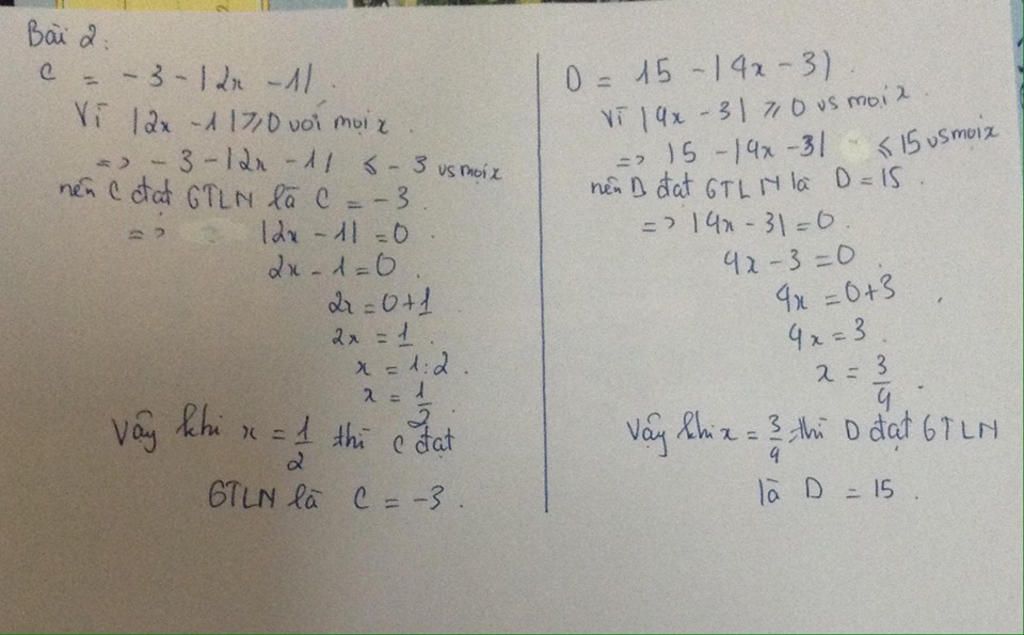 Bài 2:
C = -3 - |2x - 1|.
Vì |2x - 1| ⩾ 0 với mọi x.
=> -3 - |2x - 1| ⩽ -3 vs mọi x
nên C đạt GTLN là C = -3.
=> |2x - 1| = 0.
2x - 1 = 0.
2x = 0 + 1
2x = 1.
x = 1:2.
x = 1/2.
Vậy khi x = 1/2 thì C đạt
GTLN là C = -3.
D = 15 - |4x - 3|.
Vì |4x - 3| ⩾ 0 vs mọi x.
=> 15 - |4x - 3| ⩽ 15 vs mọi x
nên D đạt GTLN là D = 15.
=> |4x - 3| = 0.
4x - 3 = 0.
4x = 0 + 3
4x = 3.
x = 3/4.
Vậy khi x = 3/4 thì D đạt GTLN
là D = 15.